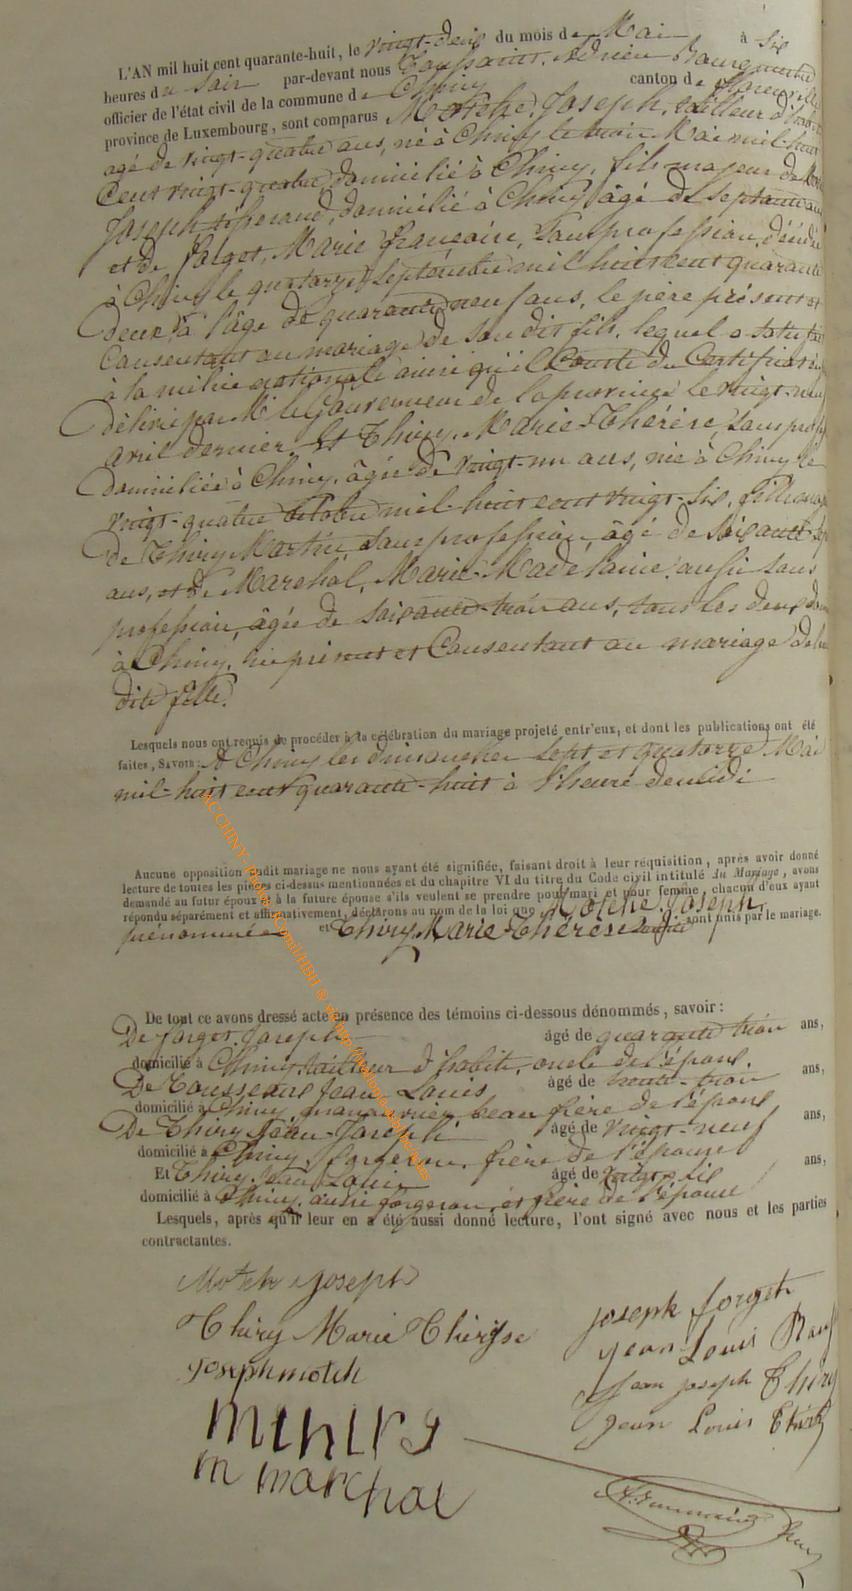 L'AN mil huit cent quarante-huit, le vingt-deux du mois de Mai à six
heures du soir par-devant nous Adrien Bourgmestre
officier de l'état civil de la commune de Chiny canton de Florenville
province de Luxembourg, sont comparus Motche, Joseph, tailleur d'habits
agé de vingt-quatre ans, né à Chiny le trois Mai mil-huit
Cent vingt-quatre domicilié à Chiny, fils majeur de
Joseph domicilié à Chiny, âgé de septante ans
et de Jorget, Marie Françoise, sans profession, décédée
à Chiny le quatorze Septembre mil huit cent quarante
deux, à l'âge de quarante neuf ans, le père présent et
Consentant au mariage de son dit fils, lequel a satisfait
à la milice nationale ainsi qu'il Conste du Certificat
délivré par Mr le Gouverneur de la province le vingt-neuf
avril dernier. Et Thiry, Marie-Thérèse, sans prof
domiciliée à Chiny, âgée de vingt-un ans, née à Chiny le
vingt-quatre octobre mil huit cent vingt-six, fille
de Thiry Martin, sans profession, âgé de soixante
ans, et de Marchal, Marie-Madelaine, aussi sans
profession, âgée de soixante-trois ans, tous les deux
à Chiny, ici présent et Consentant au mariage de
dite fille.
Lesquels nous ont requis de procéder à la célébration du mariage projeté entr'eux, et dont les publications ont été
faites, SAVOIR: A Chiny les dimanches sept et quatorze Mai
mil-huit cent quarante-huit à l'heure de midi
Aucune opposition audit mariage ne nous ayant été signifiée, faisant droit à leur réquisition, après avoir donné
lecture de toutes les pièces ci-dessus mentionnées et du chapitre VI du titre du Code civil intitulé du Mariage, avons
demandé au futur époux et à la future épouse s'ils veulent se prendre pour mari et pour femme, chacun d'eux ayant
répondu séparément et affirmativement, déclarons au nom de la loi que Motche Joseph
prénommé et Thiry, Marie-Thérèse sont unis par le mariage.
De tout ce avons dressé acte en présence des témoins ci-dessous dénommés, savoir:
De Jorget Joseph âgé de quarante trois ans,
domicilié à Chiny tailleur d'habits, oncle de l'époux.
De Jean Louis âgé de trente-trois ans,
domicilié à Chiny, manouvrier, beau frère de l'époux
De Thiry Jean-Joseph âgé de vingt-neuf ans,
domicilié à Chiny, forgeron, frère de l'épouse
Et Thiry, Jean Louis âgé de vingt six ans,
domicilié à Chiny, aussi forgeron, et frère de l'épouse
Lesquels, après qu'il leur en a été aussi donné lecture, l'ont signé avec nous et les parties
contractantes.
Motch Joseph
Thiry Marie Thérysse
Joseph motch
m thiry
m marchal
joseph forget
jean Louis
jean joseph Thiry
jean Louis Thiry